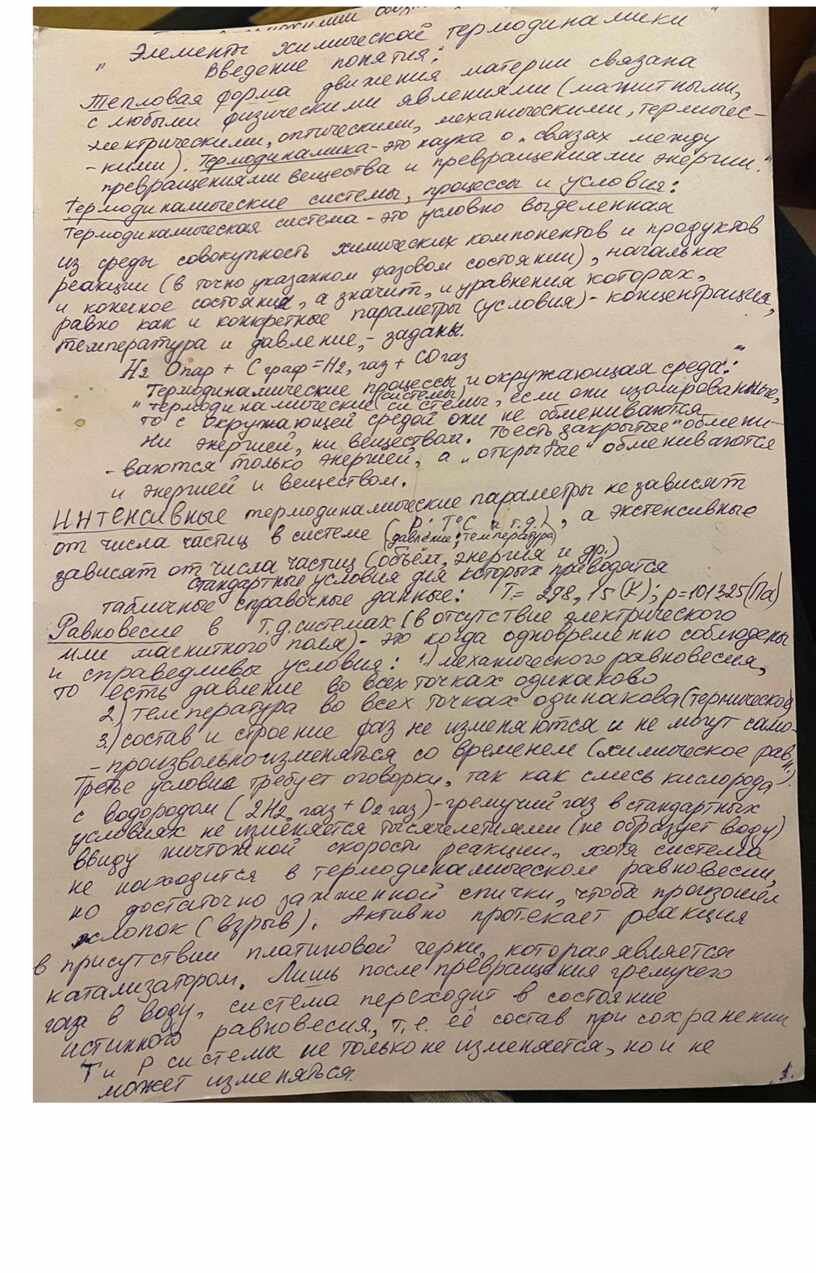 "Элементы химической термодинамики"
Введение понятия:
Тепловая форма движения материи связана
с любыми физическими явлениями (магнитными,
электрическими, оптическими, механическими, термичес-
-кими). Термодинамика - это наука о "связах между
превращениями вещества и превращениями энергии."
Термодинамические системы, процессы и условия:
Термодинамическая система - это условно выделенная
из среды совокупность химических компонентов и продуктов
реакции (в точно указанном фазовом состоянии), начальное
и конечное состояния, а значит, и уравнения которых,
равно как и конкретные параметры (условия) - концентрация,
температура и давление, - заданы.
H2 Oпар + C граф = H2, газ + CO газ
Термодинамические процессы и окружающая среда:"
(системы)
"термодинамические системы, если они изолированные,
то с окружающей средой они не обмениваются
ни энергией, ни веществом. То есть "закрытые" обмени-
-ваются только энергией, а "открытые" обмениваются
и энергией и веществом.
Интенсивные термодинамические параметры не зависят
от числа частиц в системе (P; T°C и т.д.), а экстенсивные
(давление; температура)
зависят от числа частиц (объём, энергия и др.)
стандартные условия для которых приводятся
табличные справочные данные: T = 298,15 (К); p=101325(Па)
Равновесие в т.д. системах (в отсутствие электрического
или магнитного поля) - это когда одновременно соблюдены
и справедливы условия: 1) механического равновесия,
то есть давление во всех точках одинаково
2) температура во всех точках одинакова (термической)
3) состав и строение фаз не изменяются и не могут само-
-произвольно изменяться со временем (химическое рав.)
Третье условие требует оговорки, так как смесь кислорода
с водородом (2H2, газ + O2 газ) - гремучий газ в стандартных
условиях не изменяется тысячелетиями (не образует воду)
ввиду ничтожной скорости реакции, хотя система
не находится в термодинамическом равновесии,
но достаточно зажженной спички, чтобы произошёл
хлопок (взрыв). Активно протекает реакция
в присутствии платиновой черни, которая является
катализатором. Лишь после превращения гремучего
газа в воду, система переходит в состояние
истинного равновесия, т.е. её состав при сохранении
T и P системы не только не изменяется, но и не
может изменяться.
1.